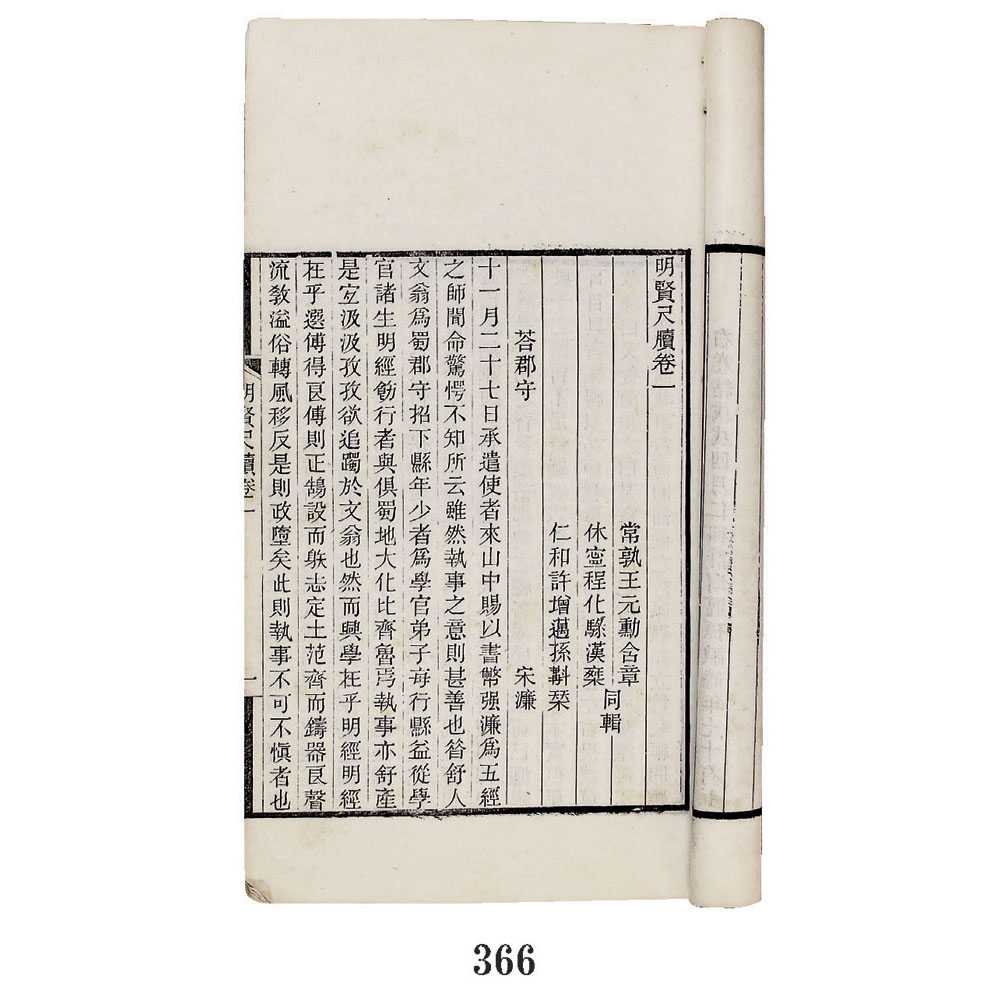 明賢尺牘卷一
常孰王元勳含章
休寧程化騄漢棻
同輯
仁和許增邁孫斠栞
荅郡守
宋濂
十一月二十七日承遣使者來山中賜以書幣强濂爲五經
之師聞命驚愕不知所云雖然執事之意則甚善也昝舒人
文翁爲蜀郡守招下縣年少者爲學官弟子每行縣益從學
官諸生明經飭行者與俱蜀地大化比齊魯焉執事亦舒產
是宐汲汲孜孜欲追躅於文翁也然而興學在乎明經明經
在乎選傅得良傅則正鵠設而躲志定土范齊而鑄器良聲
流敎溢俗轉風移反是則政墮矣此則執事不可不愼者也
明賢尺牘卷一
一
366